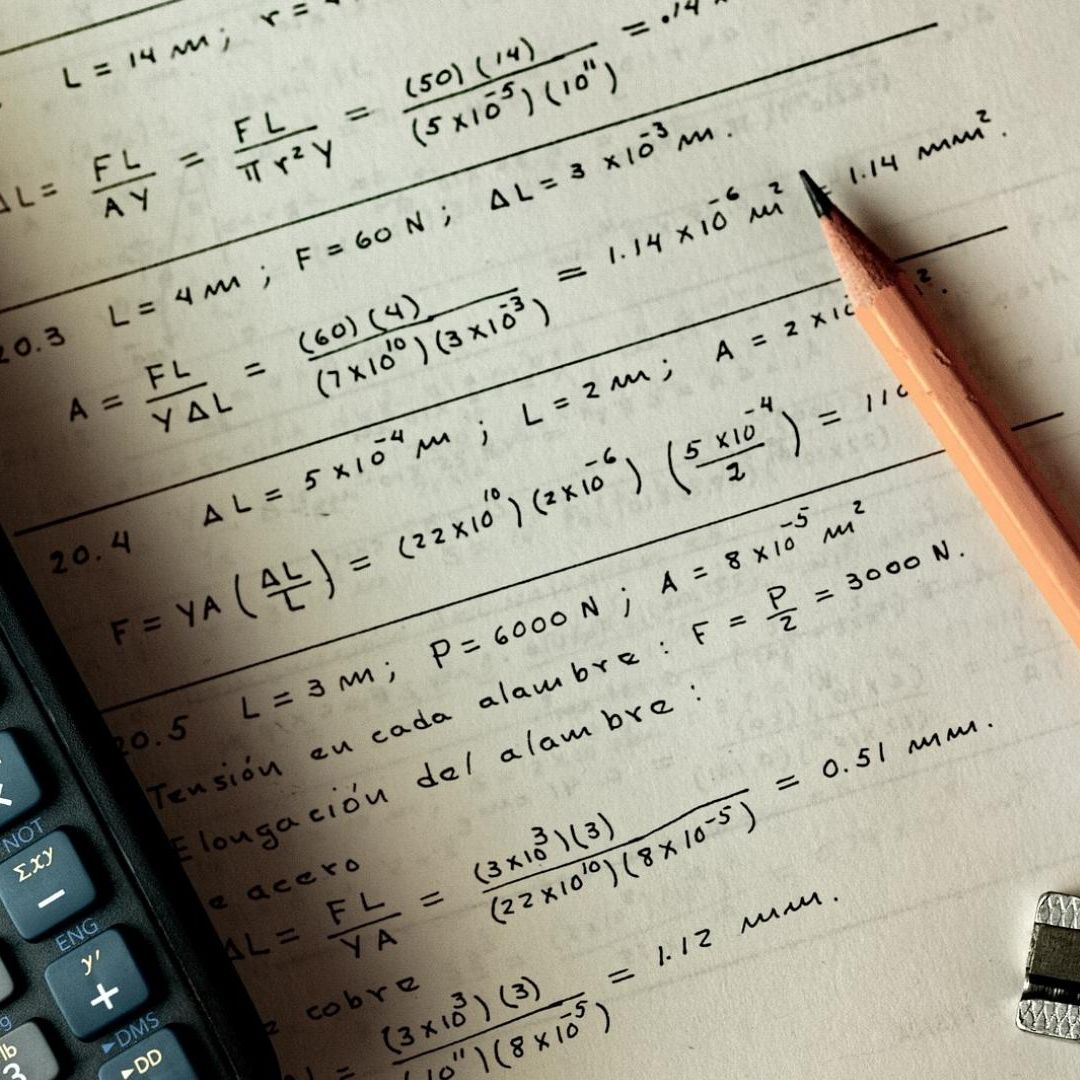 L = 14 m ; r =
ΔL = FL / AY = FL / πr²Y = (50)(14) / (5×10⁻⁵)(10¹¹) = .14
20.3 L = 4 m ; F = 60 N ; ΔL = 3 ×10⁻³ m.
A = FL / YΔL = (60)(4) / (7×10¹⁰)(3×10⁻³) = 1.14 ×10⁻⁶ m² = 1.14 mm².
20.4 ΔL = 5 ×10⁻⁴ m ; L = 2 m ; A = 2 ×10
F = YA (ΔL / L) = (22×10¹⁰)(2×10⁻⁶) (5 ×10⁻⁴ / 2) = 110
20.5 L = 3 m ; P = 6000 N ; A = 8 ×10⁻⁵ m²
Tensión en cada alambre : F = P / 2 = 3000 N.
Elongación del alambre :
e acero
ΔL = FL / YA = (3×10³)(3) / (22×10¹⁰)(8×10⁻⁵) = 0.51 mm.
cobre
= (3×10³)(3) / (10¹¹)(8×10⁻⁵) = 1.12 mm.
NOT
Σxy
−
ENG
y'
+
▶DMS
▶DD
lb
3